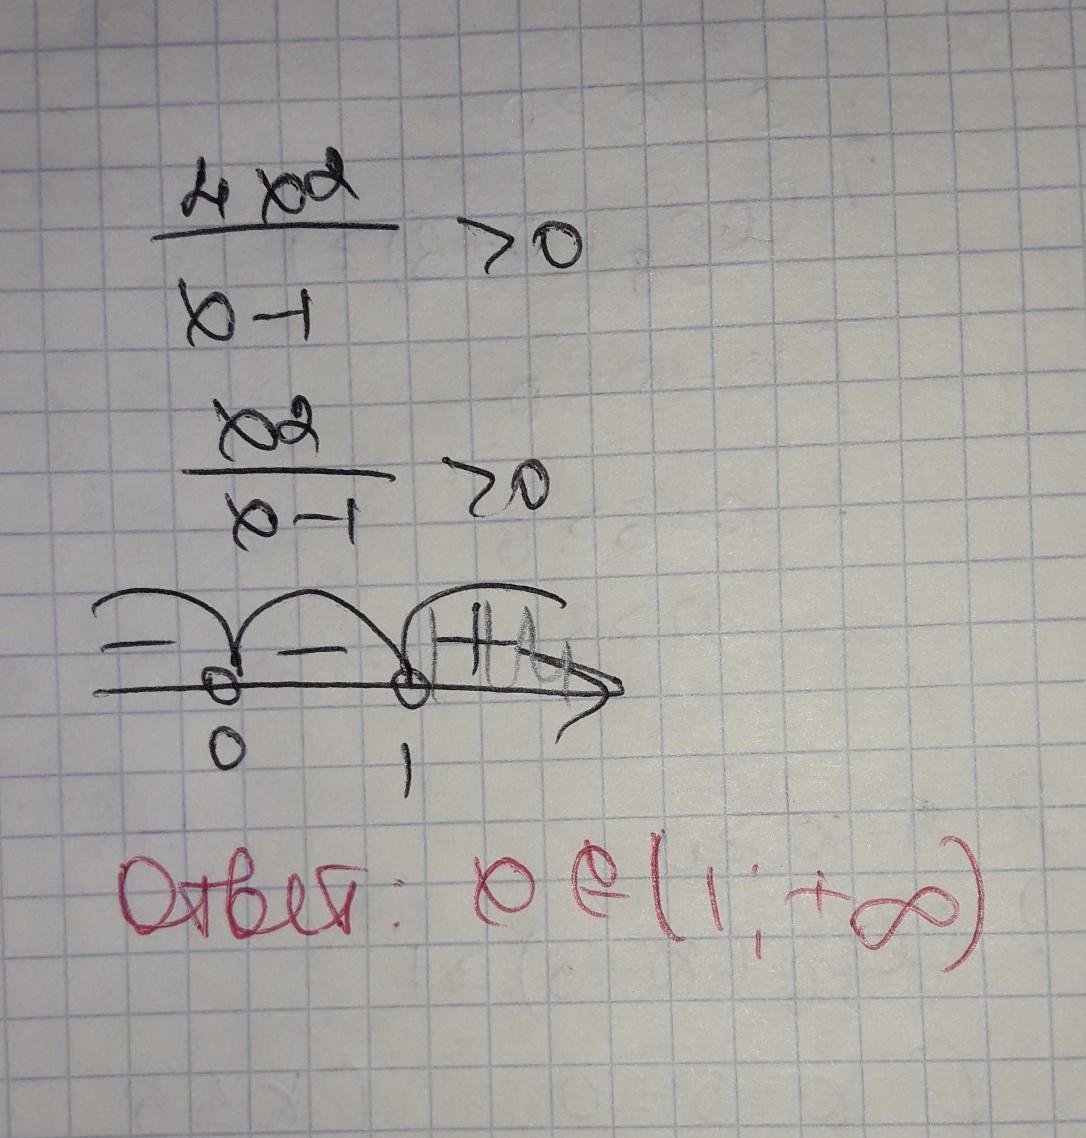 4x2
x-1
>0
x2
x-1
>0
- - +
0 1
Ответ: x ∈ (1; +∞)